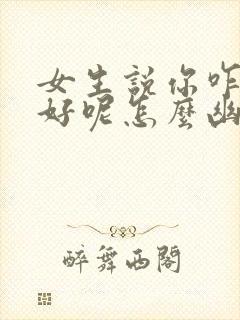 女生說你咋
好呢怎麼幽
醉舞西閣